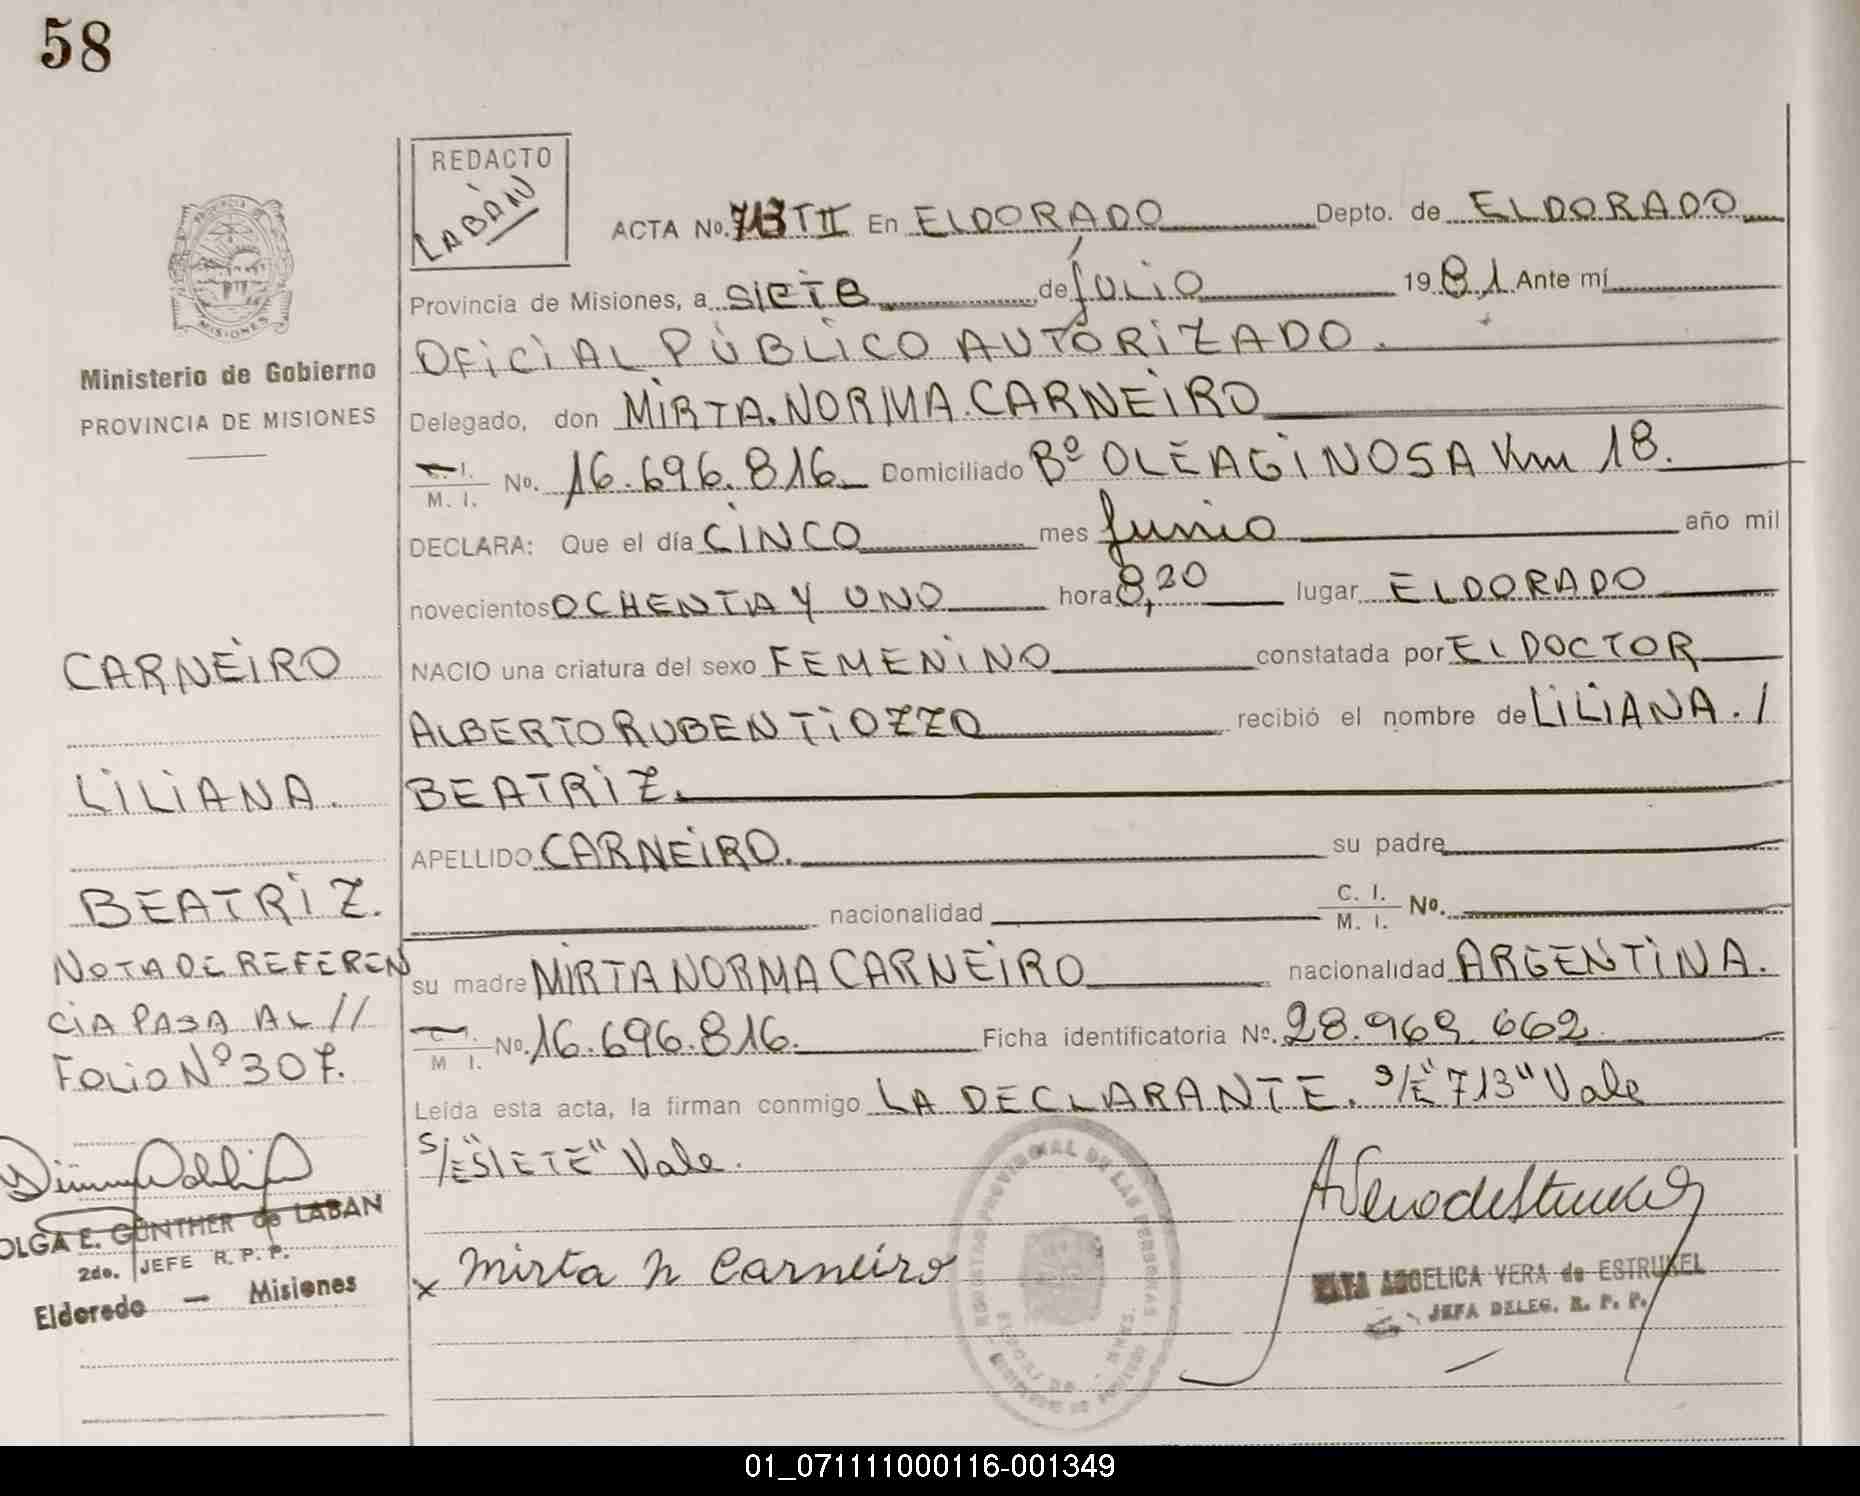 58
REDACTO
LABÁN
ACTA No. 713 T II En ELDORADO Depto. de ELDORADO
Provincia de Misiones, a SIETE de JULIO 1981 Ante mí
OFICIAL PÚBLICO AUTORIZADO.
Delegado, don MIRTA. NORMA. CARNEIRO
C. I.
M. I. No. 16.696.816 Domiciliado Bº OLEAGINOSA Km 18.
DECLARA: Que el día CINCO mes Junio año mil
novecientos OCHENTA Y UNO hora 8,20 lugar ELDORADO
NACIO una criatura del sexo FEMENINO constatada por EL DOCTOR
ALBERTO RUBEN TIOZZO recibió el nombre de LILIANA. /
BEATRIZ.
APELLIDO CARNEIRO. su padre
nacionalidad C. I.
M. I. No.
su madre MIRTA NORMA CARNEIRO nacionalidad ARGENTINA.
C. I.
M. I. No. 16.696.816. Ficha identificatoria No. 28.969.662
Leída esta acta, la firman conmigo LA DECLARANTE. S/E "713" Vale
S/E "SIETE" Vale.
Mirta N Carneiro
ANGELICA VERA de ESTRUKEL
JEFA DELEG. R. P. P.
PROVINCIA DE
MISIONES
Ministerio de Gobierno
PROVINCIA DE MISIONES
CARNEIRO
LILIANA.
BEATRIZ.
NOTA DE REFEREN
CIA PASA AL //
FOLIO Nº 307.
OLGA E. GÜNTHER de LABAN
2do. JEFE R. P. P.
Eldorado — Misiones
REGISTRO PROVINCIAL DE LAS PERSONAS
01_071111000116-001349